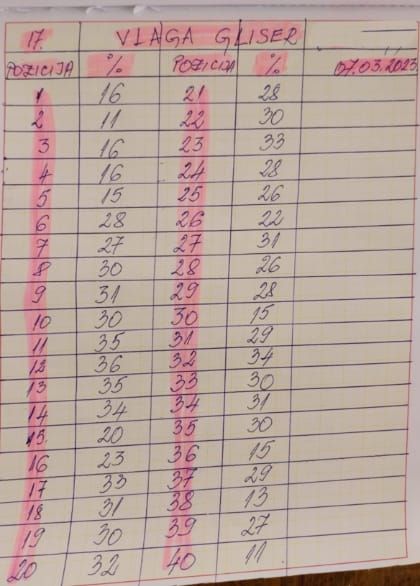 17. VLAGA GLISER
POZICIJA % POZICIJA % 07.03.2023.
1 16 21 28
2 11 22 30
3 16 23 33
4 16 24 28
5 15 25 26
6 28 26 22
7 27 27 31
8 30 28 26
9 31 29 28
10 30 30 15
11 35 31 29
12 36 32 34
13 35 33 30
14 34 34 31
15. 20 35 30
16 23 36 15
17 33 37 29
18 31 38 13
19 30 39 27
20 32 40 11